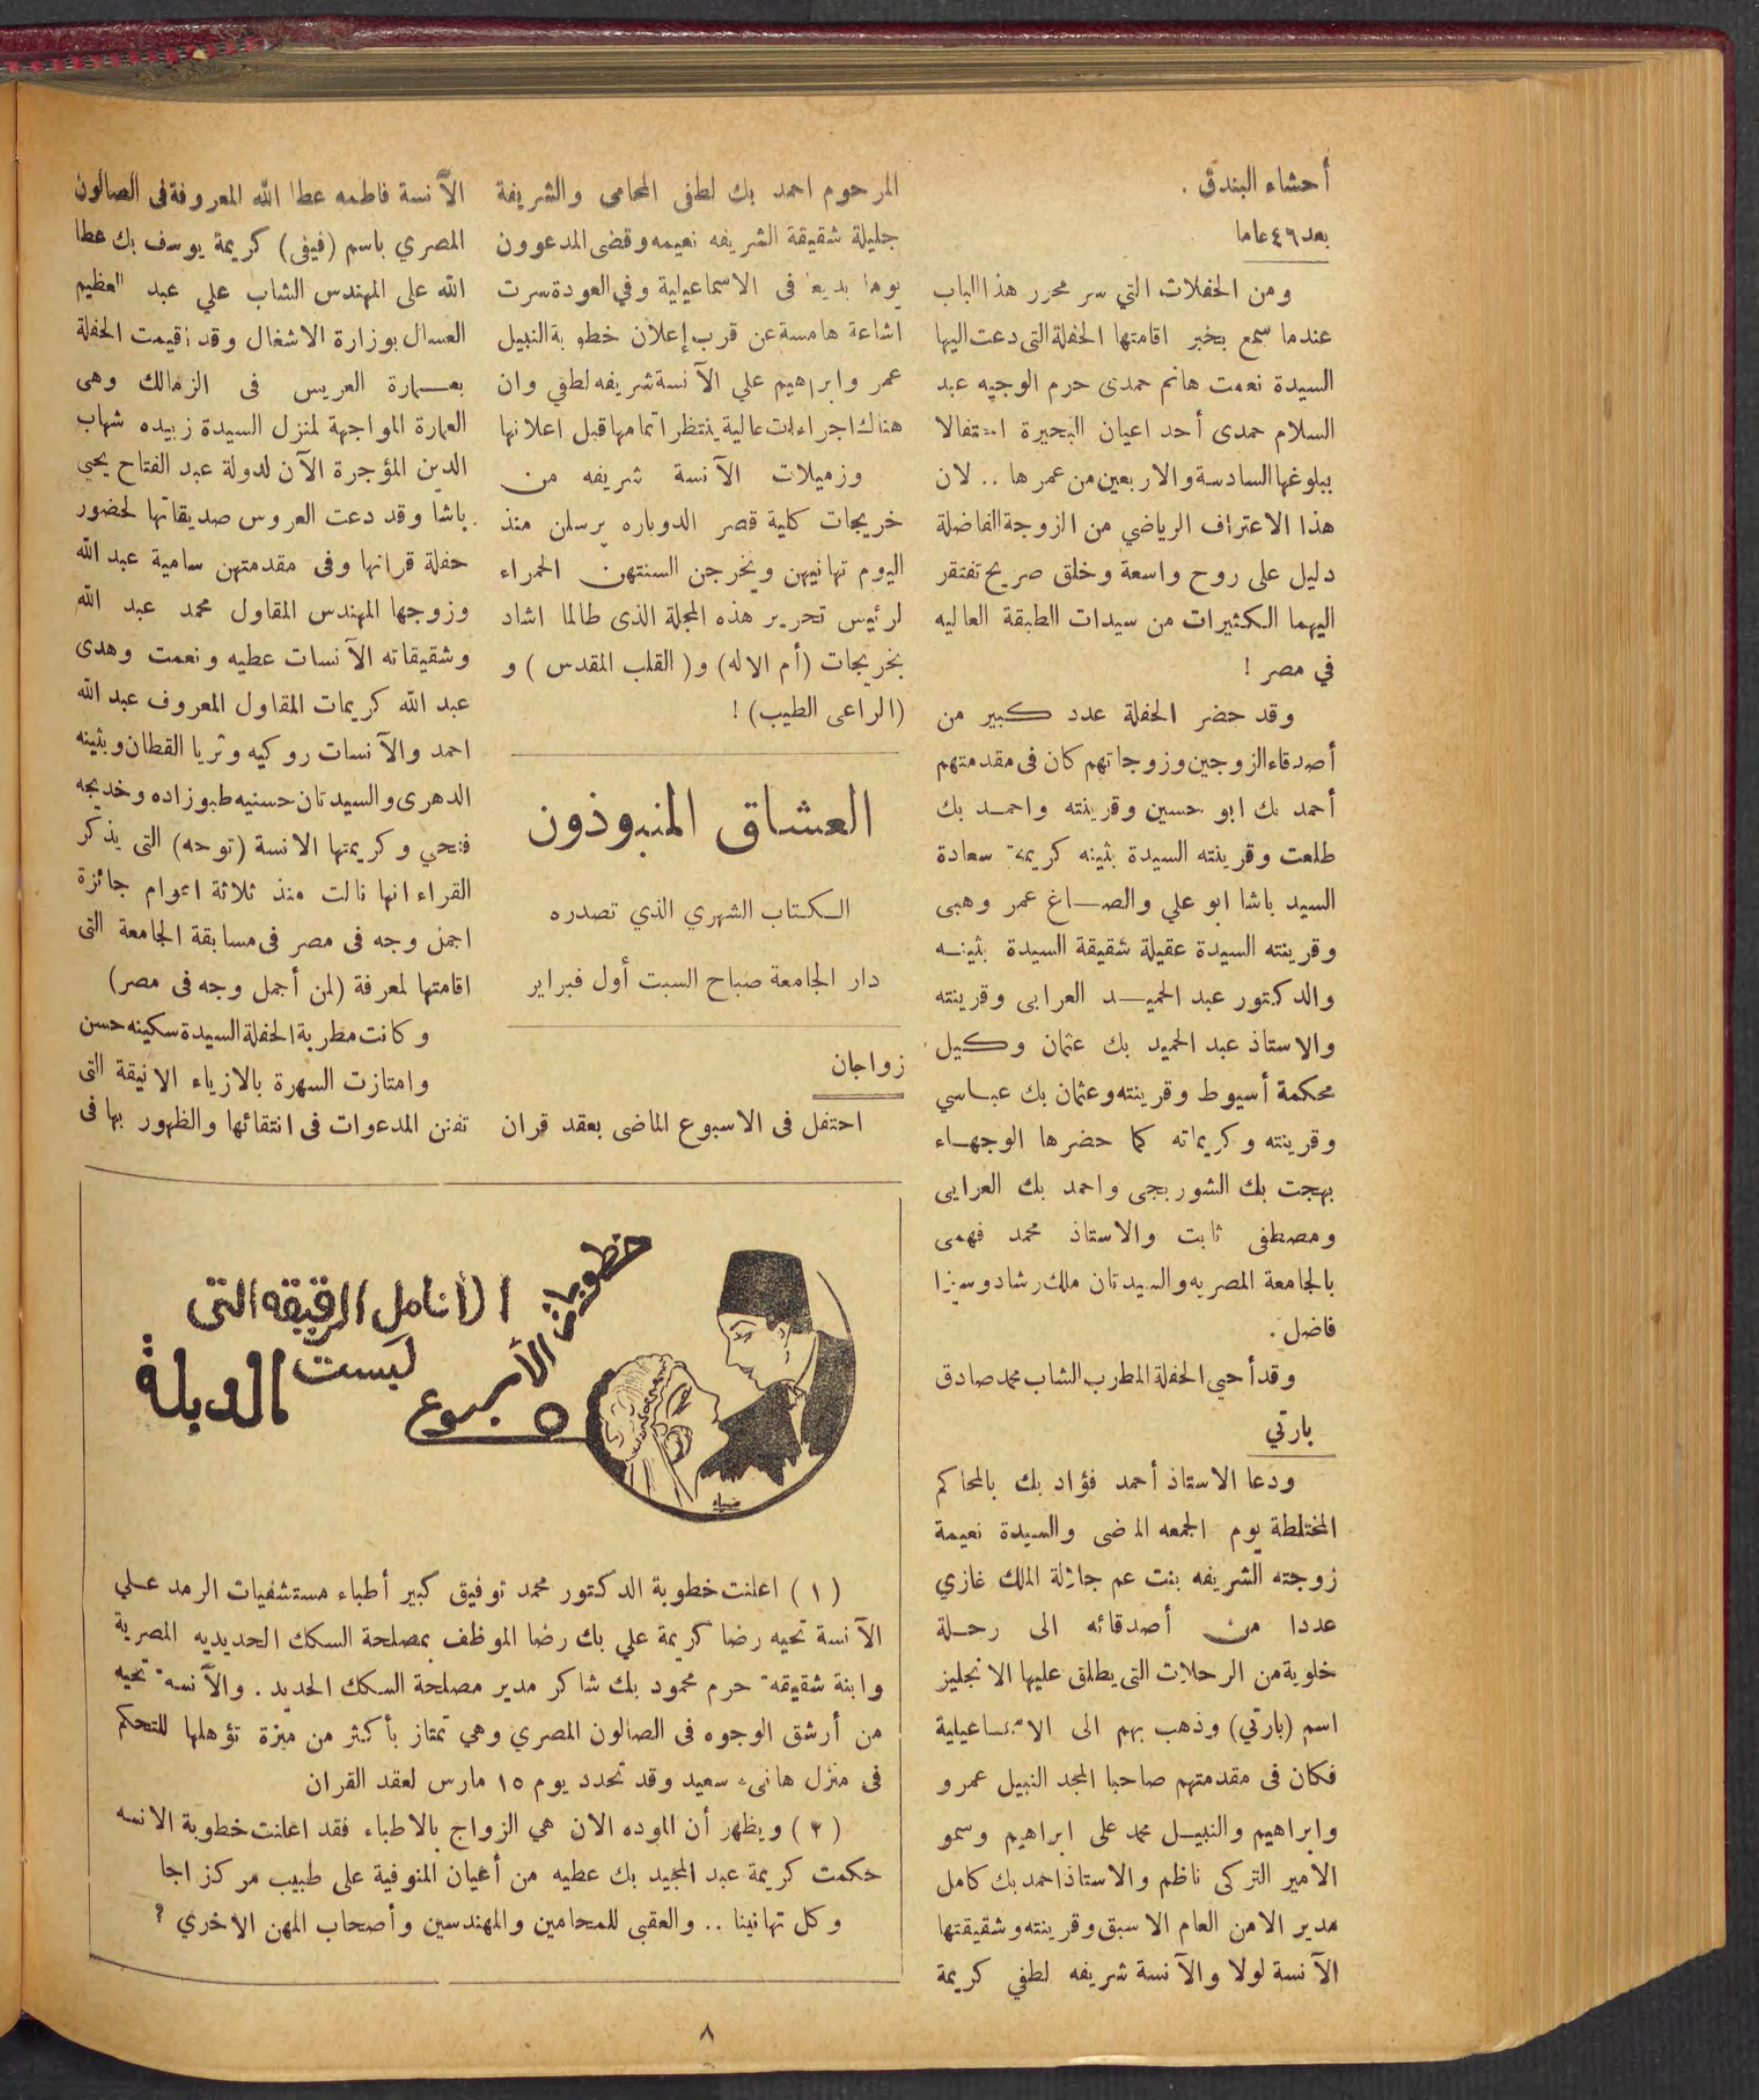 أحشاء البندق .
بعد ٤٦ عاما
ومن الحفلات التي سر محرر هذا الباب
عندما سمع بخبر اقامتها الحفلة التى دعت اليها
السيدة نعمت هانم حمدى حرم الوجيه عبد
السلام حمدى أحد اعيان البحيرة احتفالا
ببلوغها السادسة والاربعين من عمرها .. لان
هذا الاعتراف الرياضي من الزوجة الفاضلة
دليل على روح واسعة وخلق صريح تفتقر
اليهما الكثيرات من سيدات الطبقة العاليه
في مصر !
وقد حضر الحفلة عدد كبير من
أصدقاء الزوجين وزوجاتهم كان فى مقدمتهم
أحمد بك ابو حسين وقرينته واحمد بك
طلعت وقرينته السيدة بثينه كريمة سعادة
السيد باشا ابو علي والصاغ عمر وهبى
وقرينته السيدة عقيلة شقيقة السيدة بثينه
والدكتور عبد الحميد العرابى وقرينته
والاستاذ عبد الحميد بك عثمان وكيل
محكمة أسيوط وقرينته وعثمان بك عباسي
وقرينته وكريماته كما حضرها الوجهاء
بهجت بك الشوربجى واحمد بك العرابى
ومصطفى ثابت والاستاذ محمد فهمى
بالجامعة المصريه والسيدتان ملك رشاد وسيزا
فاضل .
وقد أحيى الحفلة المطرب الشاب محمد صادق
بارتي
ودعا الاستاذ أحمد فؤاد بك بالمحاكم
المختلطة يوم الجمعه الماضى والسيدة نعيمة
زوجته الشريفه بنت عم جلالة الملك غازي
عددا من أصدقائه الى رحلة
خلوية من الرحلات التى يطلق عليها الانجليز
اسم (بارتي) وذهب بهم الى الاسماعيلية
فكان فى مقدمتهم صاحبا المجد النبيل عمرو
وابراهيم والنبيل محمد على ابراهيم وسمو
الامير التركى ناظم والاستاذ احمد بك كامل
مدير الامن العام الاسبق وقرينته وشقيقتها
الآنسة لولا والآنسة شريفه لطفي كريمة
المرحوم احمد بك لطفى المحامى والشريفة
جليلة شقيقة الشريفه نعيمه وقضى المدعوون
يوما بديعا فى الاسماعيلية وفي العودة سرت
اشاعة هامسة عن قرب إعلان خطوبة النبيل
عمر وابراهيم علي الآنسة شريفه لطفي وان
هناك اجراءات عالية ينتظر اتمامها قبل اعلانها
وزميلات الآنسة شريفه من
خريجات كلية قصر الدوباره يرسلن منذ
اليوم تهانيهن ويخرجن السنتهن الحمراء
لرئيس تحرير هذه المجلة الذى طالما اشاد
بخريجات (أم الاله) و( القلب المقدس ) و
(الراعى الطيب) !
العشاق المنبوذون
الكتاب الشهري الذي تصدره
دار الجامعة صباح السبت أول فبراير
زواجان
احتفل فى الاسبوع الماضى بعقد قران
الآنسة فاطمه عطا الله المعروفة فى الصالون
المصري باسم (فيفى) كريمة يوسف بك عطا
الله على المهندس الشاب علي عبد العظيم
العسال بوزارة الاشغال وقد اقيمت الحفلة
بعمارة العريس فى الزمالك وهى
العمارة المواجهة لمنزل السيدة زبيده شهاب
الدين المؤجرة الآن لدولة عبد الفتاح يحي
باشا وقد دعت العروس صديقاتها لحضور
حفلة قرانها وفى مقدمتهن سامية عبد الله
وزوجها المهندس المقاول محمد عبد الله
وشقيقاته الآنسات عطيه ونعمت وهدى
عبد الله كريمات المقاول المعروف عبد الله
احمد والآنسات روكيه وثريا القطان وبثينه
الدهرى والسيدتان حسنيه طبوزاده وخديجه
فتحي وكريمتها الانسة (توحه) التى يذكر
القراء انها نالت منذ ثلاثة اعوام جائزة
اجمل وجه فى مصر فى مسابقة الجامعة التى
اقامتها لمعرفة (لمن أجمل وجه فى مصر)
وكانت مطربة الحفلة السيدة سكينه حسن
وامتازت السهرة بالازياء الانيقة التى
تفنن المدعوات فى انتقائها والظهور بها فى
خطوبات الأسبوع
الأنامل الرقيقه التى
لبست الدبلة
ضياء
( ١ ) اعلنت خطوبة الدكتور محمد توفيق كبير أطباء مستشفيات الرمد علي
الآنسة تحيه رضا كريمة علي بك رضا الموظف بمصلحة السكك الحديديه المصرية
وابنة شقيقة حرم محمود بك شاكر مدير مصلحة السكك الحديد . والآنسة تحيه
من أرشق الوجوه فى الصالون المصري وهي تمتاز بأكثر من ميزة تؤهلها للتحكم
فى منزل هانىء سعيد وقد تحدد يوم ١٥ مارس لعقد القران
( ٢ ) ويظهر أن الموده الان هي الزواج بالاطباء فقد اعلنت خطوبة الانسه
حكمت كريمة عبد المجيد بك عطيه من أعيان المنوفية على طبيب مركز اجا
وكل تهانينا .. والعقبى للمحامين والمهندسين وأصحاب المهن الاخري ؟
٨